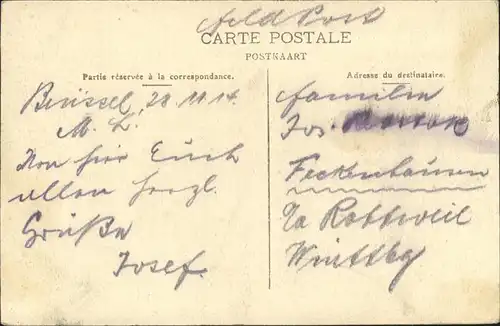 Feld Post
CARTE POSTALE
POSTKAART
Partie réservée à la correspondance.
Brüssel, 20 11 14.
M. L.
Von hier Euch
allen herzl.
Grüße
Josef.
Adresse du destinataire.
Familie
Jos.
Feckenhausen
Rottweil
Württbg